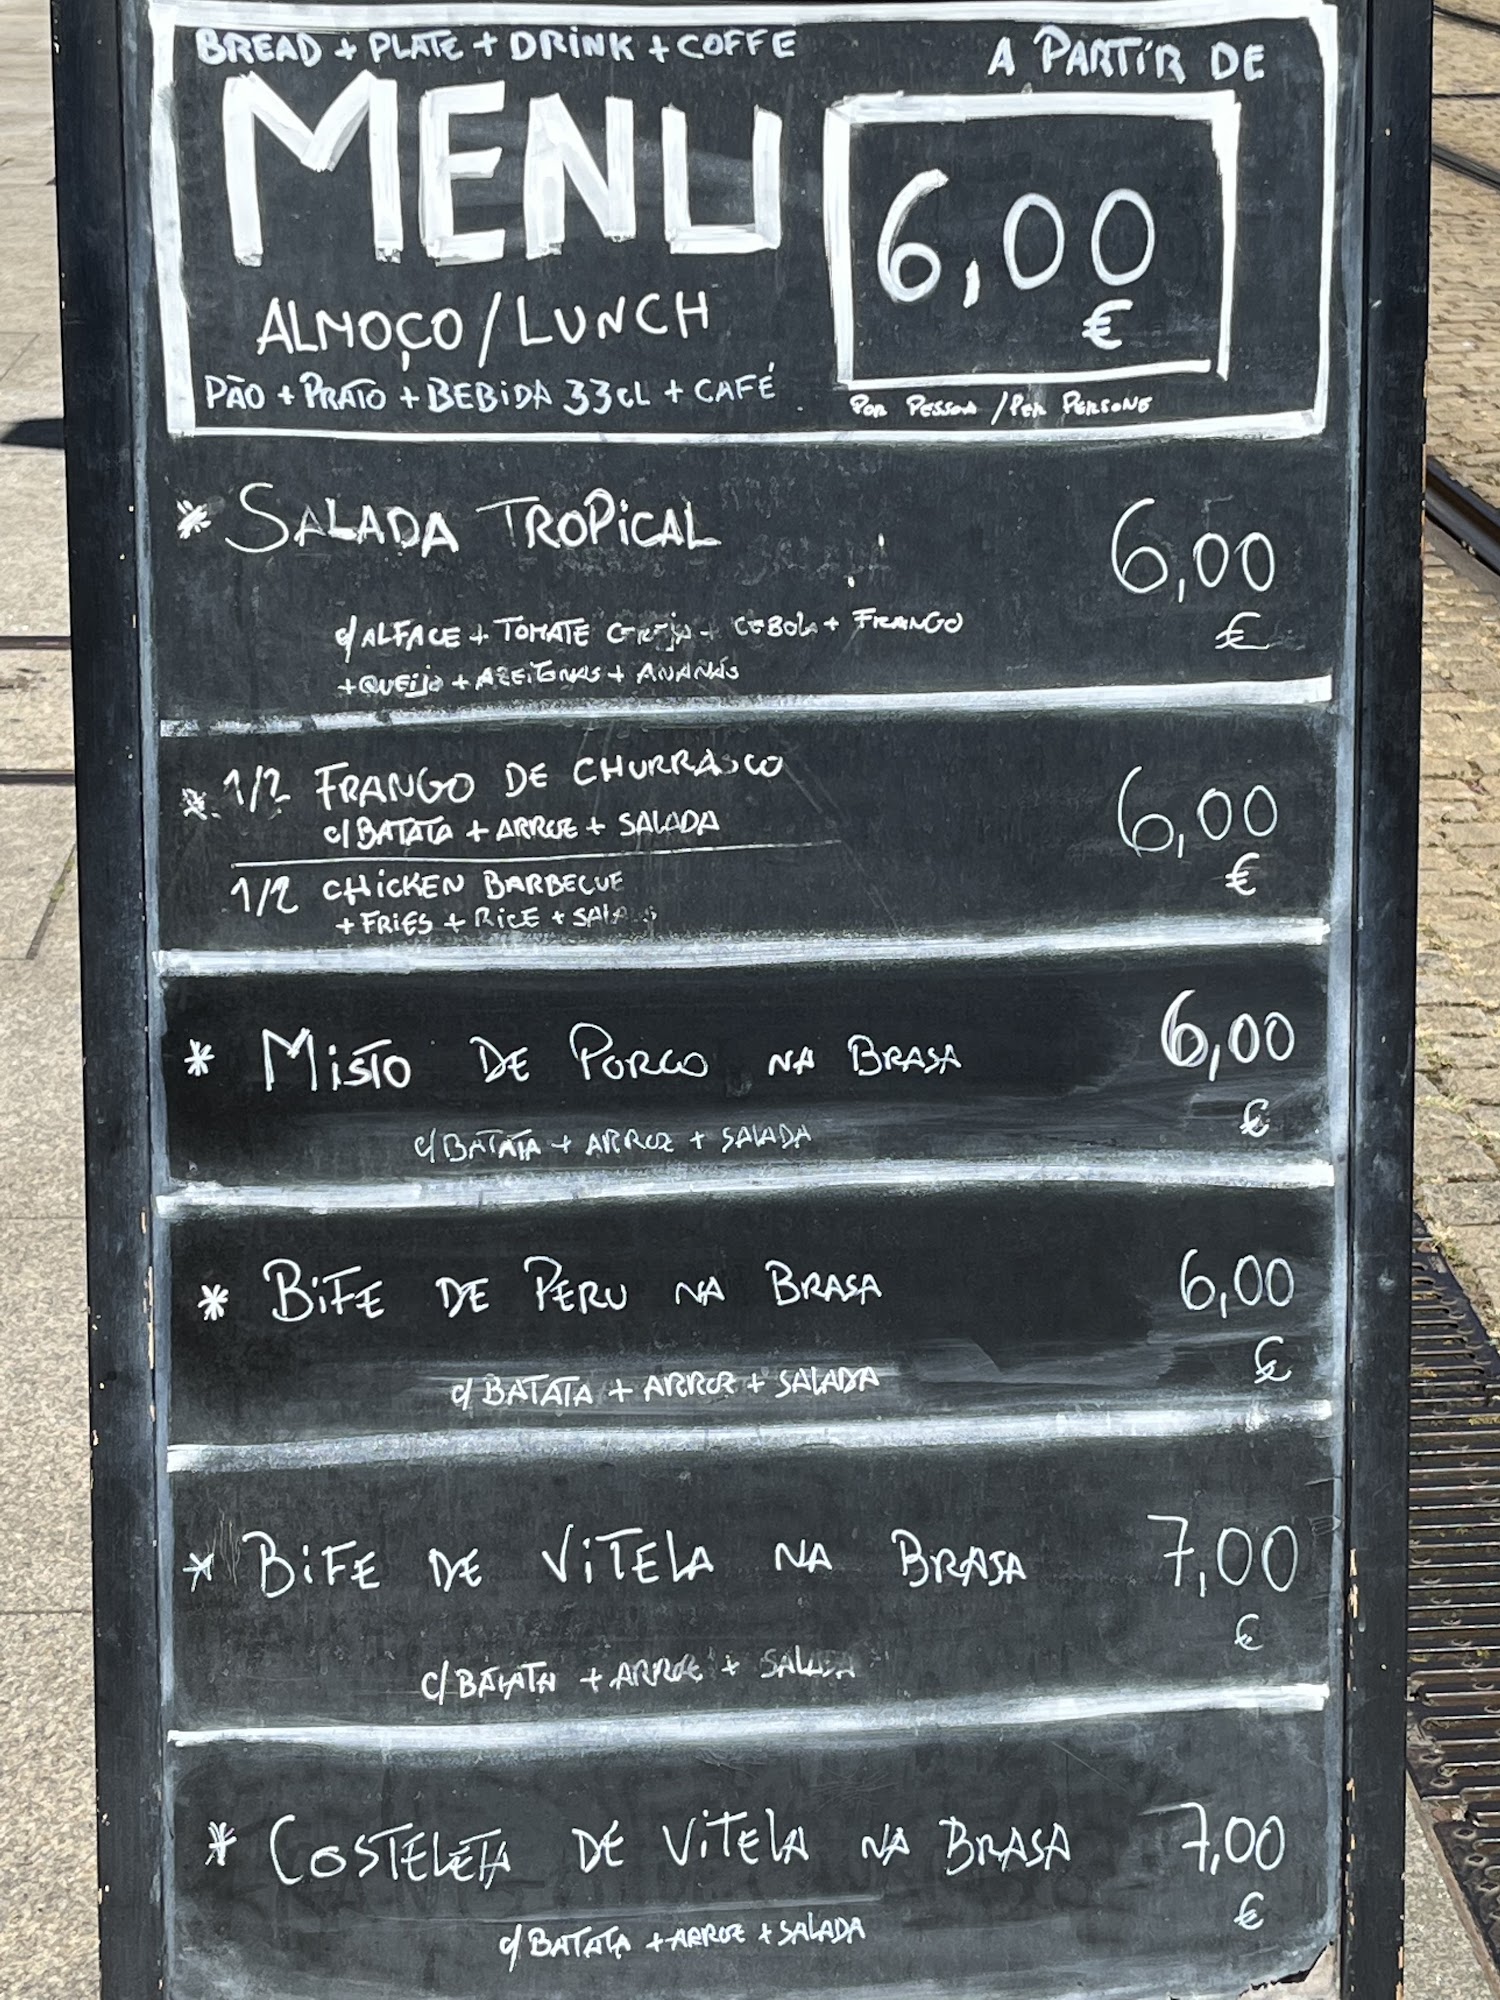 BREAD + PLATE + DRINK + COFFE
A PARTIR DE
MENU
6,00
€
ALMOÇO / LUNCH
PÃO + PRATO + BEBIDA 33CL + CAFÉ
POR PESSOA / PER PERSONE
* SALADA TROPICAL
6,00
€
c/ ALFACE + TOMATE CEREJA + CEBOLA + FRANGO
+ QUEIJO + AZEITONAS + ANANÁS
* 1/2 FRANGO DE CHURRASCO
c/ BATATA + ARROZ + SALADA
6,00
€
1/2 CHICKEN BARBECUE
+ FRIES + RICE + SALADA
* MISTO DE PORCO NA BRASA
6,00
€
c/ BATATA + ARROZ + SALADA
* BIFE DE PERU NA BRASA
6,00
€
c/ BATATA + ARROZ + SALADA
* BIFE DE VITELA NA BRASA
7,00
€
c/ BATATA + ARROZ + SALADA
* COSTELETA DE VITELA NA BRASA
7,00
€
c/ BATATA + ARROZ + SALADA